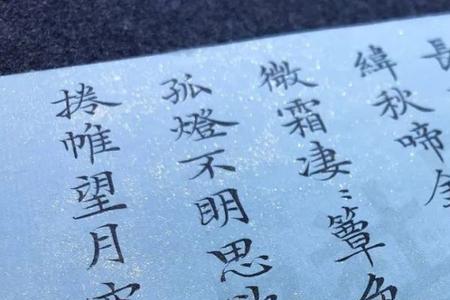 長
緯秋啼金
微霜淒〻簟色
孤燈不明思
捲帷望月空